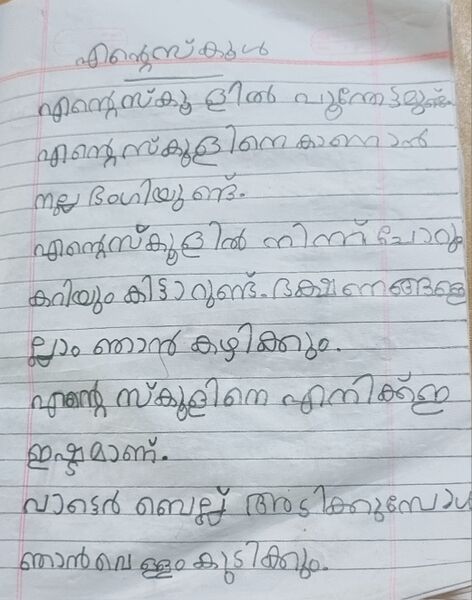 എന്റെസ്കൂൾ
എന്റെസ്കൂളിൽ പൂന്തോട്ടമുണ്ട്.
എന്റെസ്കൂളിനെ കാണാൻ
നല്ല ഭംഗിയുണ്ട്.
എന്റെസ്കൂളിൽ നിന്ന് ചോറും
കറിയും കിട്ടാറുണ്ട്. ഭക്ഷണങ്ങളെ
ല്ലാം ഞാൻ കഴിക്കും.
എന്റെ സ്കൂളിനെ എനിക്ക്ഇ
ഇഷ്ടമാണ്.
വാട്ടെർ ബെല്ല് അടിക്കുമ്പോൾ
ഞാൻവെള്ളം കുടിക്കും.